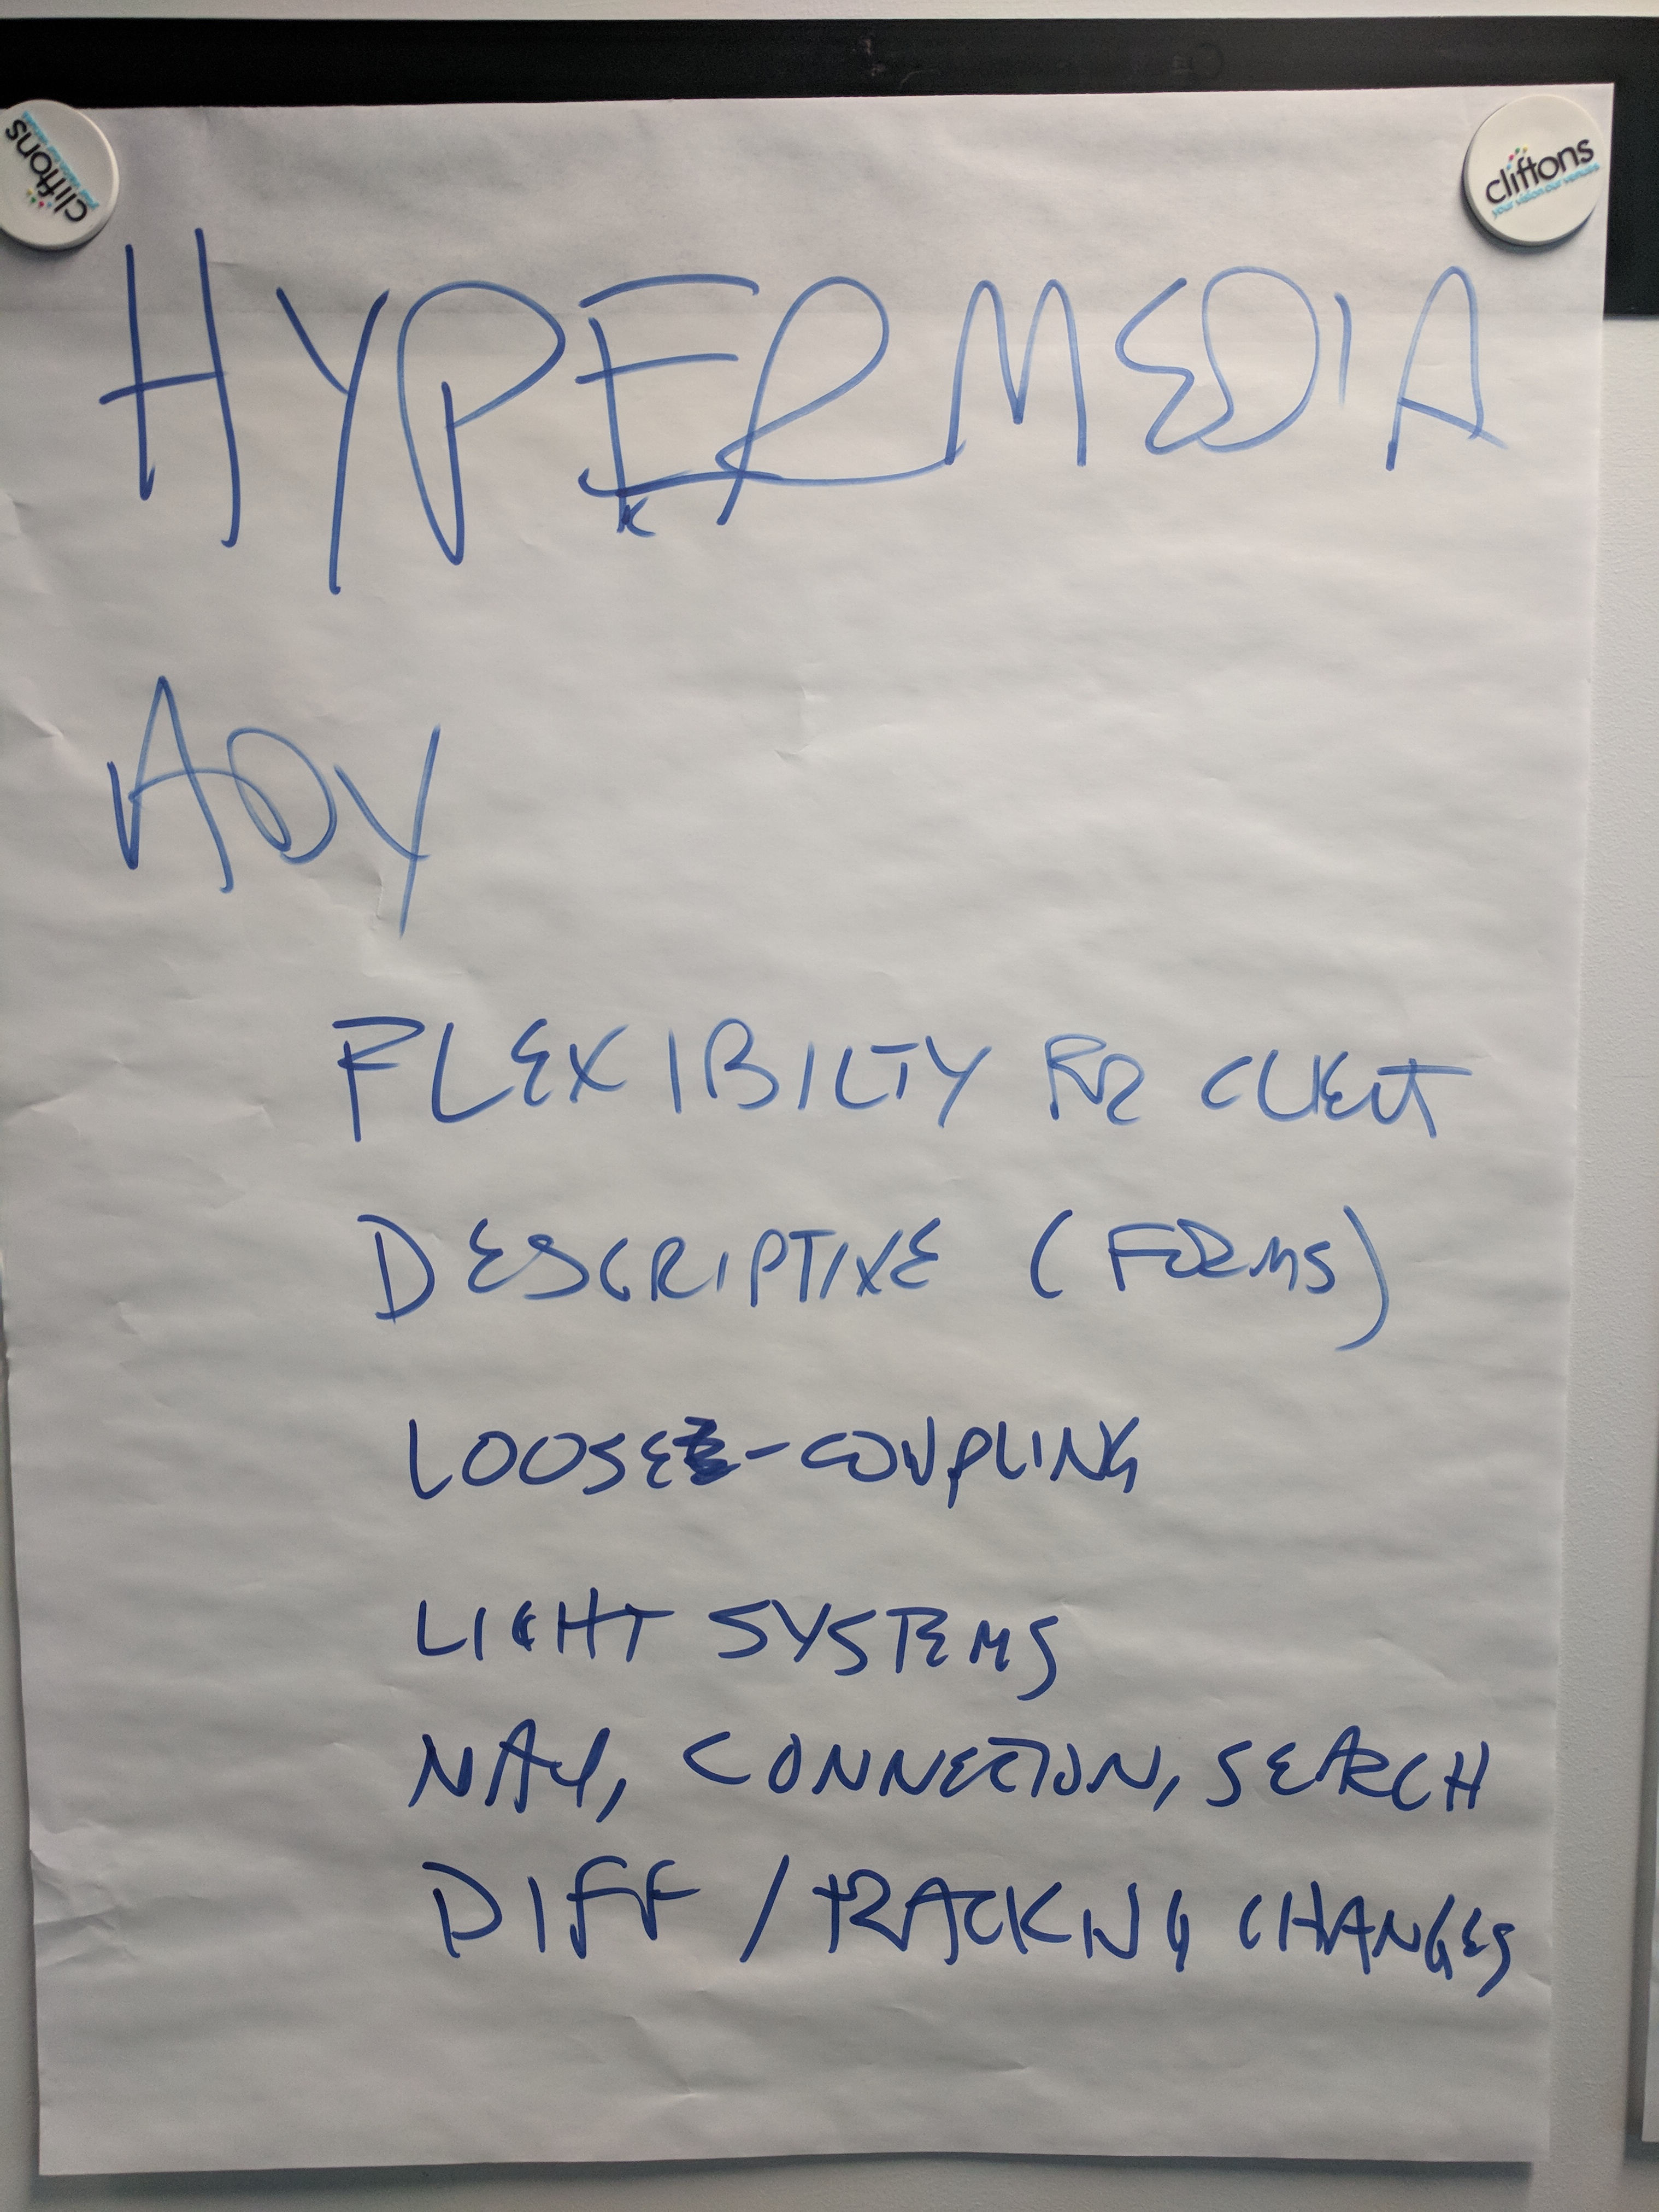 cliftons
your vision our venues
cliftons
your vision our venues
HYPERMEDIA
ADV
FLEXIBILTY FOR CLIENT
DESCRIPTIVE (FORMS)
LOOSE-COUPLING
LIGHT SYSTEMS
NAV, CONNECTION, SEARCH
DIFF / TRACKING CHANGES